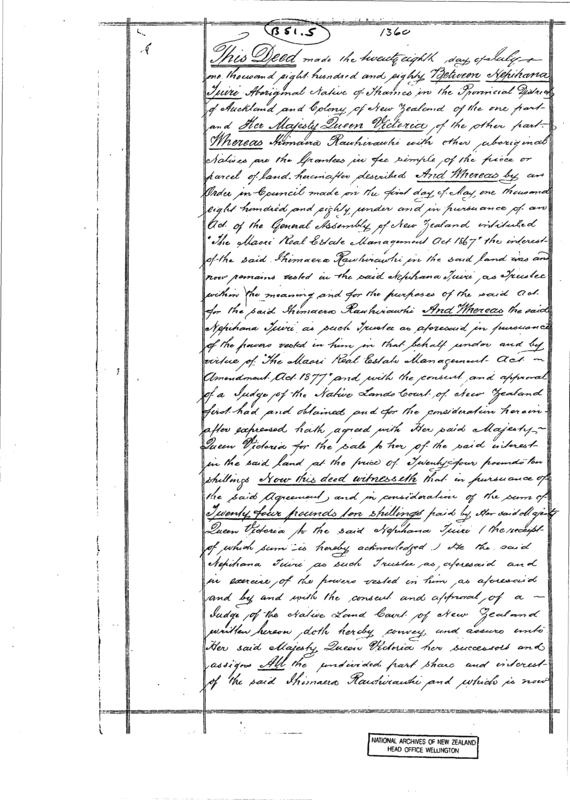 B 51.5
1360
This Deed made the twenty eighth day of July
one thousand eight hundred and eighty Between Nepihana
Tuiri Aboriginal Native of Thames in the Provincial District
of Auckland and Colony of New Zealand of the one part
and Her Majesty Queen Victoria of the other part
Whereas Ihimaera Rawhirawhi with other aboriginal
Natives are the Grantees in fee simple of the piece or
parcel of land hereinafter described And Whereas by an
Order in Council made on the first day of May one thousand
eight hundred and eighty under and in pursuance of an
Act of the General Assembly of New Zealand intituled
"The Maori Real Estate Management Act 1867" the interest
of the said Ihimaera Rawhirawhi in the said land was and
now remains vested in the said Nepihana Tuiri as Trustee
within the meaning and for the purposes of the said Act
for the said Ihimaera Rawhirawhi And Whereas the said
Nepihana Tuiri as such Trustee as aforesaid in pursuance
of the powers vested in him in that behalf under and by
virtue of "The Maori Real Estate Management Act –
Amendment Act 1877" and with the consent and approval
of a Judge of the Native Lands Court of New Zealand
first had and obtained and for the consideration herein
after expressed hath agreed with Her said Majesty
Queen Victoria for the sale to her of the said interest
in the said land at the price of Twenty four pounds ten
shillings Now this deed witnesseth that in pursuance of
the said Agreement and in consideration of the sum of
Twenty four pounds ten shillings paid by Her said Majesty
Queen Victoria to the said Nepihana Tuiri (the receipt
of which sum is hereby acknowledged) He the said
Nepihana Tuiri as such Trustee as aforesaid and
in exercise of the powers vested in him as aforesaid
and by and with the consent and approval of a –
Judge of the Native Land Court of New Zealand
written hereon doth hereby convey and assure unto
Her said Majesty Queen Victoria her successors and
assigns All the undivided part share and interest
of the said Ihimaera Rawhirawhi and which is now
NATIONAL ARCHIVES OF NEW ZEALAND
HEAD OFFICE WELLINGTON